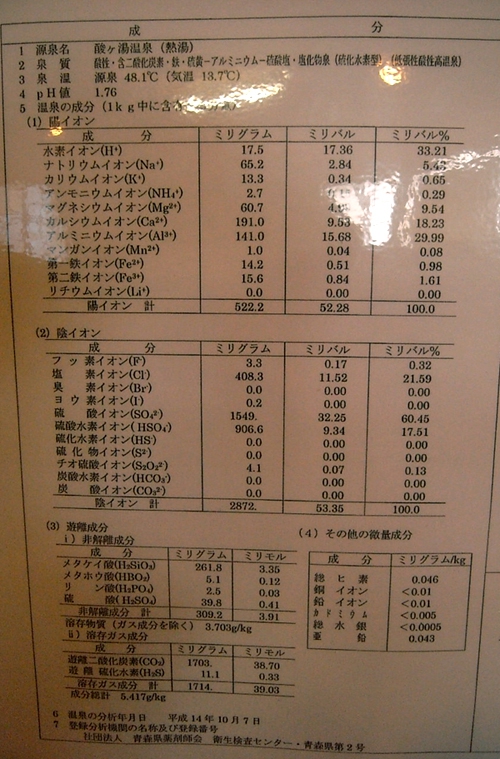 成　分
1 源泉名　酸ヶ湯温泉（熱湯）
2 泉質　酸性・含二酸化炭素・鉄・硫黄－アルミニウム－硫酸塩・塩化物泉（硫化水素型）（低張性酸性高温泉）
3 泉温　源泉 48.1℃（気温 13.7℃）
4 pH値　1.76
5 温泉の成分（1kg中に含
(1) 陽イオン
成　分　ミリグラム　ミリバル　ミリバル%
水素イオン(H⁺)　17.5　17.36　33.21
ナトリウムイオン(Na⁺)　65.2　2.84
カリウムイオン(K⁺)　13.3　0.34　0.65
アンモニウムイオン(NH₄⁺)　2.7　0.29
マグネシウムイオン(Mg²⁺)　60.7　9.54
カルシウムイオン(Ca²⁺)　191.0　9.53　18.23
アルミニウムイオン(Al³⁺)　141.0　15.68　29.99
マンガンイオン(Mn²⁺)　1.0　0.04　0.08
第一鉄イオン(Fe²⁺)　14.2　0.51　0.98
第二鉄イオン(Fe³⁺)　15.6　0.84　1.61
リチウムイオン(Li⁺)　0.0　0.00　0.00
陽イオン　計　522.2　52.28　100.0
(2) 陰イオン
成　分　ミリグラム　ミリバル　ミリバル%
フッ素イオン(F⁻)　3.3　0.17　0.32
塩素イオン(Cl⁻)　408.3　11.52　21.59
臭素イオン(Br⁻)　0.0　0.00　0.00
ヨウ素イオン(I⁻)　0.2　0.00　0.00
硫酸イオン(SO₄²⁻)　1549.　32.25　60.45
硫酸水素イオン(HSO₄⁻)　906.6　9.34　17.51
硫化水素イオン(HS⁻)　0.0　0.00　0.00
硫化物イオン(S²⁻)　0.0　0.00　0.00
チオ硫酸イオン(S₂O₃²⁻)　4.1　0.07　0.13
炭酸水素イオン(HCO₃⁻)　0.0　0.00　0.00
炭酸イオン(CO₃²⁻)　0.0　0.00　0.00
陰イオン　計　2872.　53.35　100.0
(3) 遊離成分
i) 非解離成分
成　分　ミリグラム　ミリモル
メタケイ酸(H₂SiO₃)　261.8　3.35
メタホウ酸(HBO₂)　5.1　0.12
リン酸(H₃PO₄)　2.5　0.03
硫酸(H₂SO₄)　39.8　0.41
非解離成分　計　309.2　3.91
溶存物質（ガス成分を除く）　3.703g/kg
ii) 溶存ガス成分
成　分　ミリグラム　ミリモル
遊離二酸化炭素(CO₂)　1703.　38.70
遊離硫化水素(H₂S)　11.1　0.33
溶存ガス成分　計　1714.　39.03
成分総計　5.417g/kg
(4) その他の微量成分
成　分　ミリグラム/kg
総ヒ素　0.046
銅イオン　<0.01
鉛イオン　<0.01
カドミウム　<0.005
総水銀　<0.0005
亜鉛　0.043
6 温泉の分析年月日　平成14年10月7日
7 登録分析機関の名称及び登録番号
社団法人　青森県薬剤師会　衛生検査センター・青森県第2号